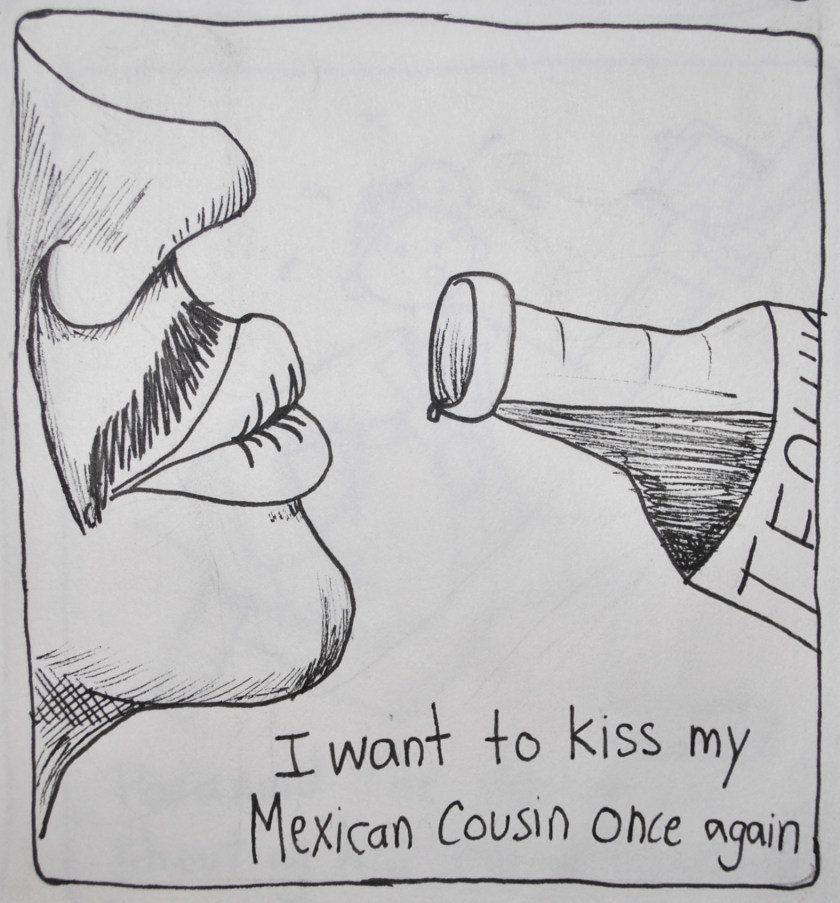 I want to kiss my
Mexican Cousin once again